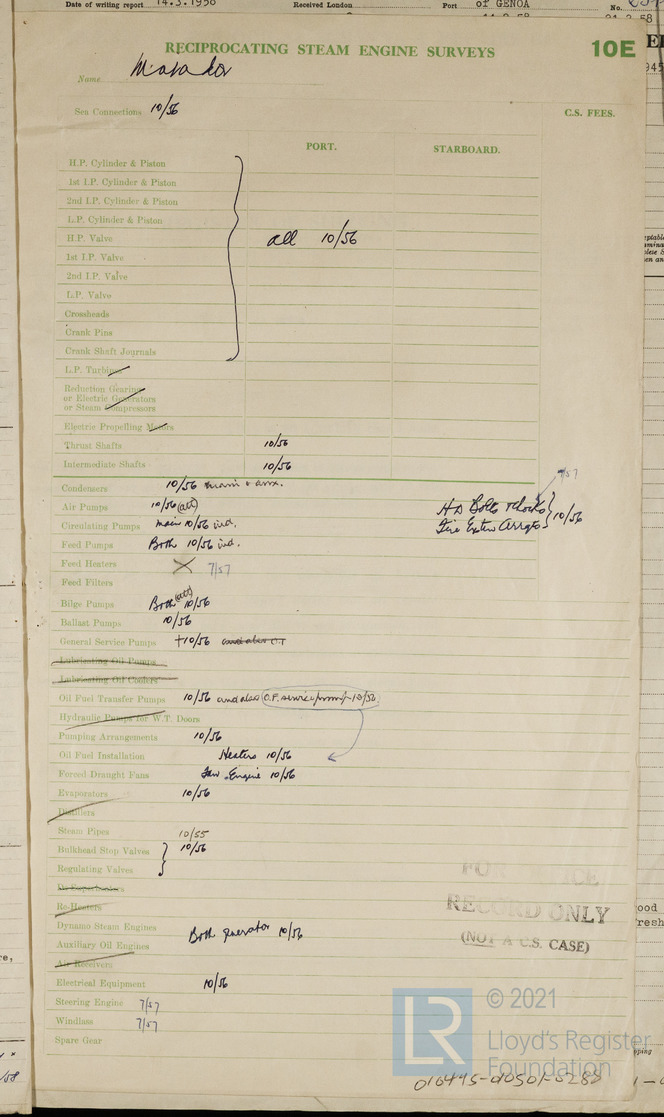 Date of writing report 14.3.1958 Received London Port of GENOA No.
RECIPROCATING STEAM ENGINE SURVEYS 10E
Name Matador
Sea Connections 10/56 C.S. FEES.
PORT. STARBOARD.
H.P. Cylinder & Piston
1st I.P. Cylinder & Piston
2nd I.P. Cylinder & Piston
L.P. Cylinder & Piston
H.P. Valve all 10/56
1st I.P. Valve
2nd I.P. Valve
L.P. Valve
Crossheads
Crank Pins
Crank Shaft Journals
L.P. Turbines
Reduction Gearing
or Electric Generators
or Steam Compressors
Electric Propelling Motors
Thrust Shafts 10/56
Intermediate Shafts 10/56
Condensers 10/56 main & aux. 7/57
Air Pumps 10/56 (att) HD Bolts & Chocks
Circulating Pumps main 10/56 ind. Fire Extin Arrgts 10/56
Feed Pumps Both 10/56 ind.
Feed Heaters X 7/57
Feed Filters
Bilge Pumps Both (att) 10/56
Ballast Pumps 10/56
General Service Pumps +10/56 and also O.T
Lubricating Oil Pumps
Lubricating Oil Coolers
Oil Fuel Transfer Pumps 10/56 and also O.F. service pump 10/56
Hydraulic Pumps for W.T. Doors
Pumping Arrangements 10/56
Oil Fuel Installation Heaters 10/56
Forced Draught Fans Fan Engine 10/56
Evaporators 10/56
Distillers
Steam Pipes 10/55
Bulkhead Stop Valves 10/56
Regulating Valves
De-Superheaters
Re-Heaters
Dynamo Steam Engines Both generator 10/56
Auxiliary Oil Engines
Air Receivers
Electrical Equipment 10/56
Steering Engine 7/57
Windlass 7/57
Spare Gear
FOR OFFICE
RECORD ONLY
(NOT A C.S. CASE)
LR © 2021
Lloyd's Register
Foundation
016495-016501-0288